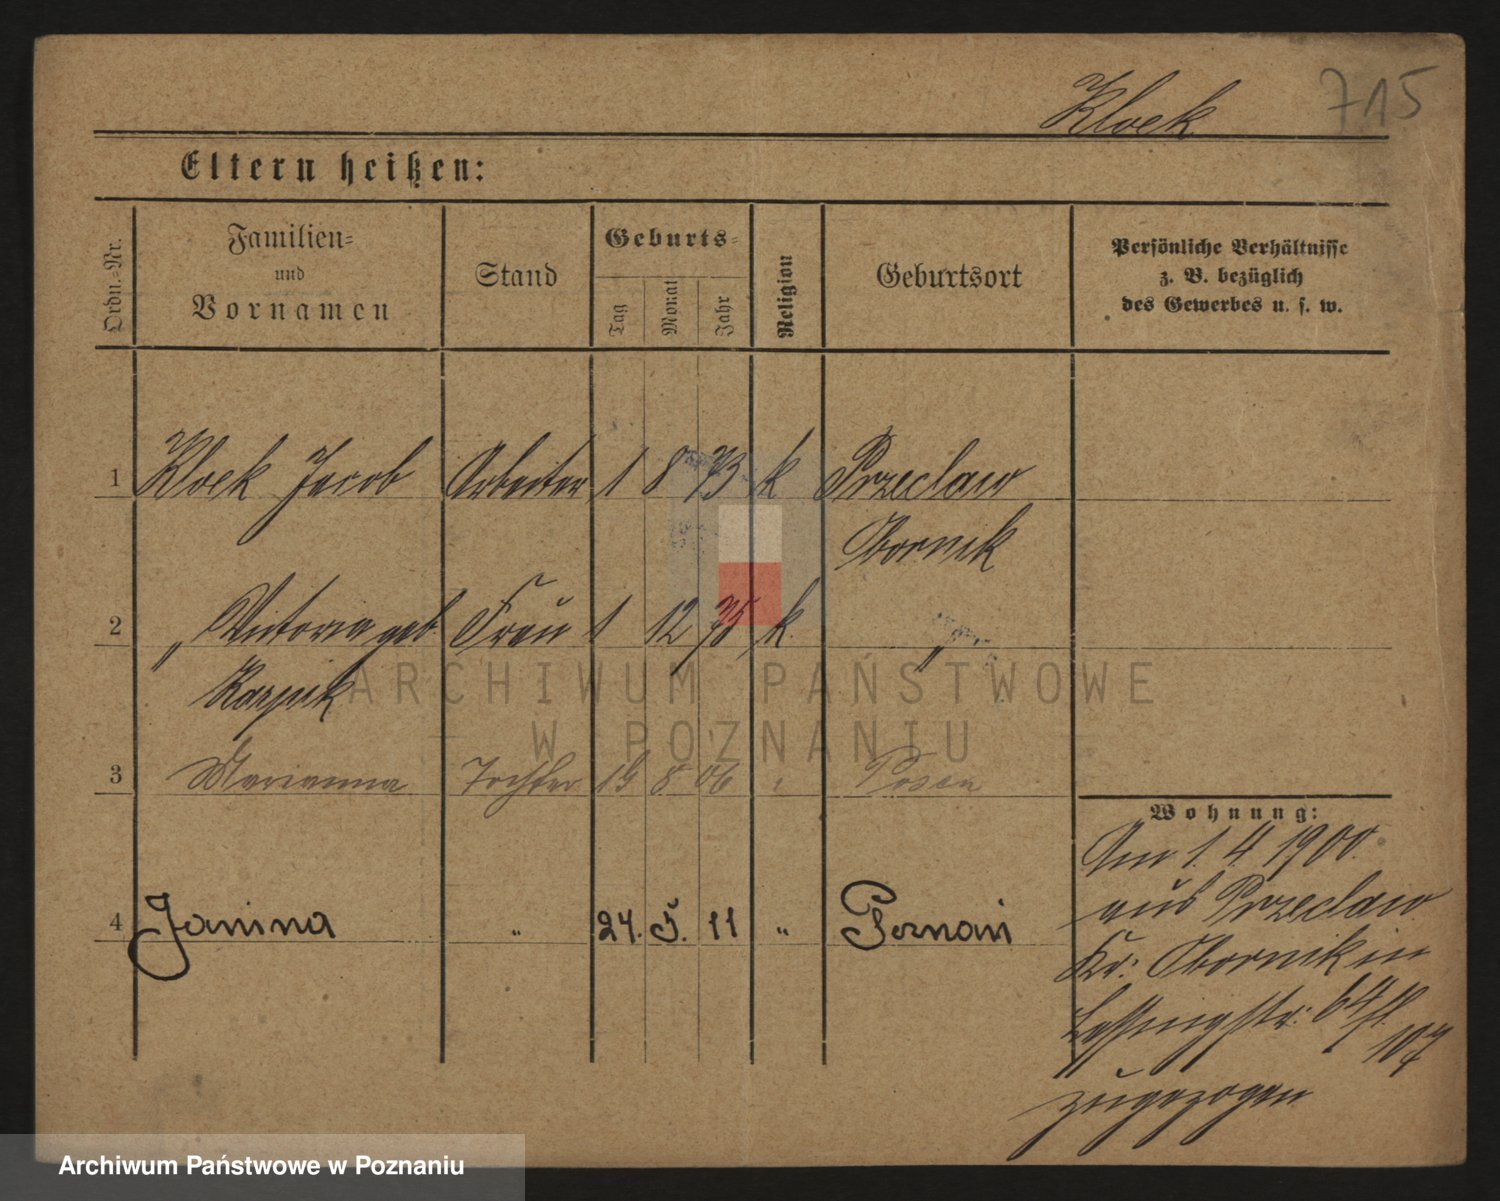 Kloek
715
Eltern heißen:
Ordn.-Nr.
Familien-
und
Vornamen
Stand
Geburts-
Tag
Monat
Jahr
Religion
Geburtsort
Persönliche Verhältnisse
z. B. bezüglich
des Gewerbes u. s. w.
1 Kloek Jacob Arbeiter 1 8 73 k Przeclaw
Obornik
2 " Victoria geb. Frau 1 12 75 k. "
3 Marianna Tochter 15 8 06 Posen
Wohnung:
Am 1. 4 1900.
aus Przeclaw
4 Janina " 24. 5. 11 " Poznań
Kr. Obornik in
Lessingstr: 64
107
zugezogen
ARCHIWUM PAŃSTWOWE
W POZNANIU
Archiwum Państwowe w Poznaniu